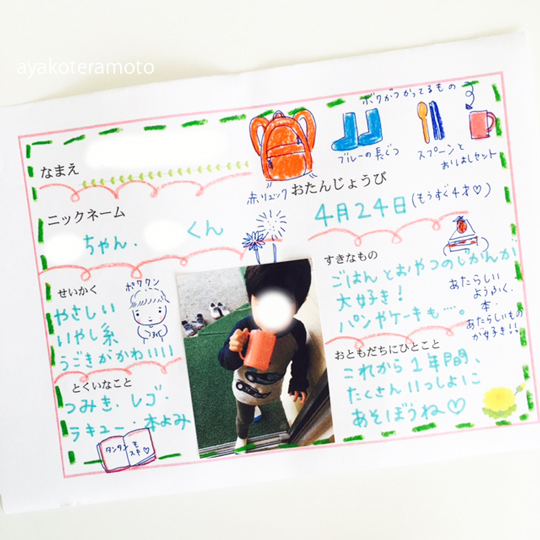 ayakoteramoto
ボクがつかってるもの
なまえ
ブルーの長ぐつ
スプーンと
おはしセット
赤リュック
おたんじょうび
4月24日(もうすぐ4才♡)
ニックネーム
ちゃん・
くん
すきなもの
ごはんとおやつのじかんが
大好き!
パンやケーキも…。
あたらしい
ようふく、
本・
あたらしいもの
が好き!!
せいかく
ボククン
やさしい
いやし系
うごきがかわいいい
とくいなこと
つみき・レゴ・
ラキュー・本よみ
タンタンも
スキ♡
おともだちにひとこと
これから1年間、
たくさんいっしょに
あそぼうね♡